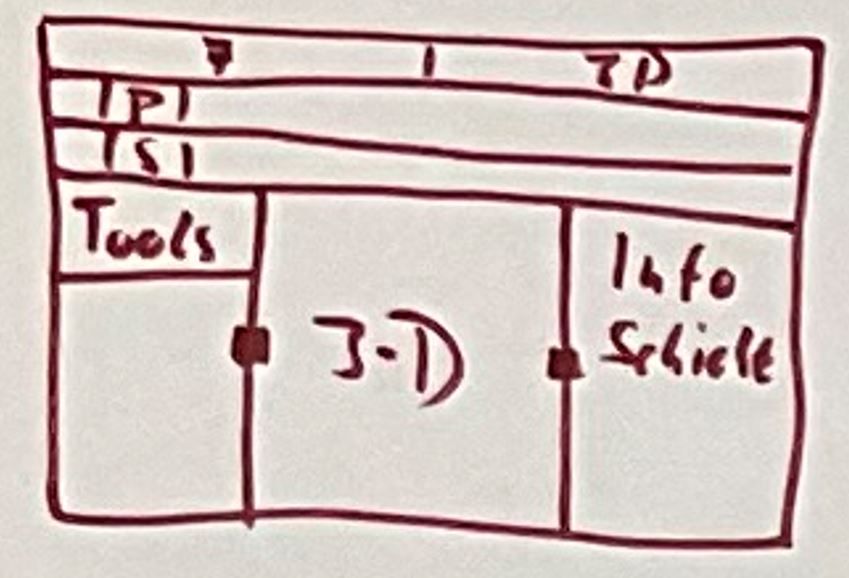 P
S
Tools
3-D
Info
Schicht